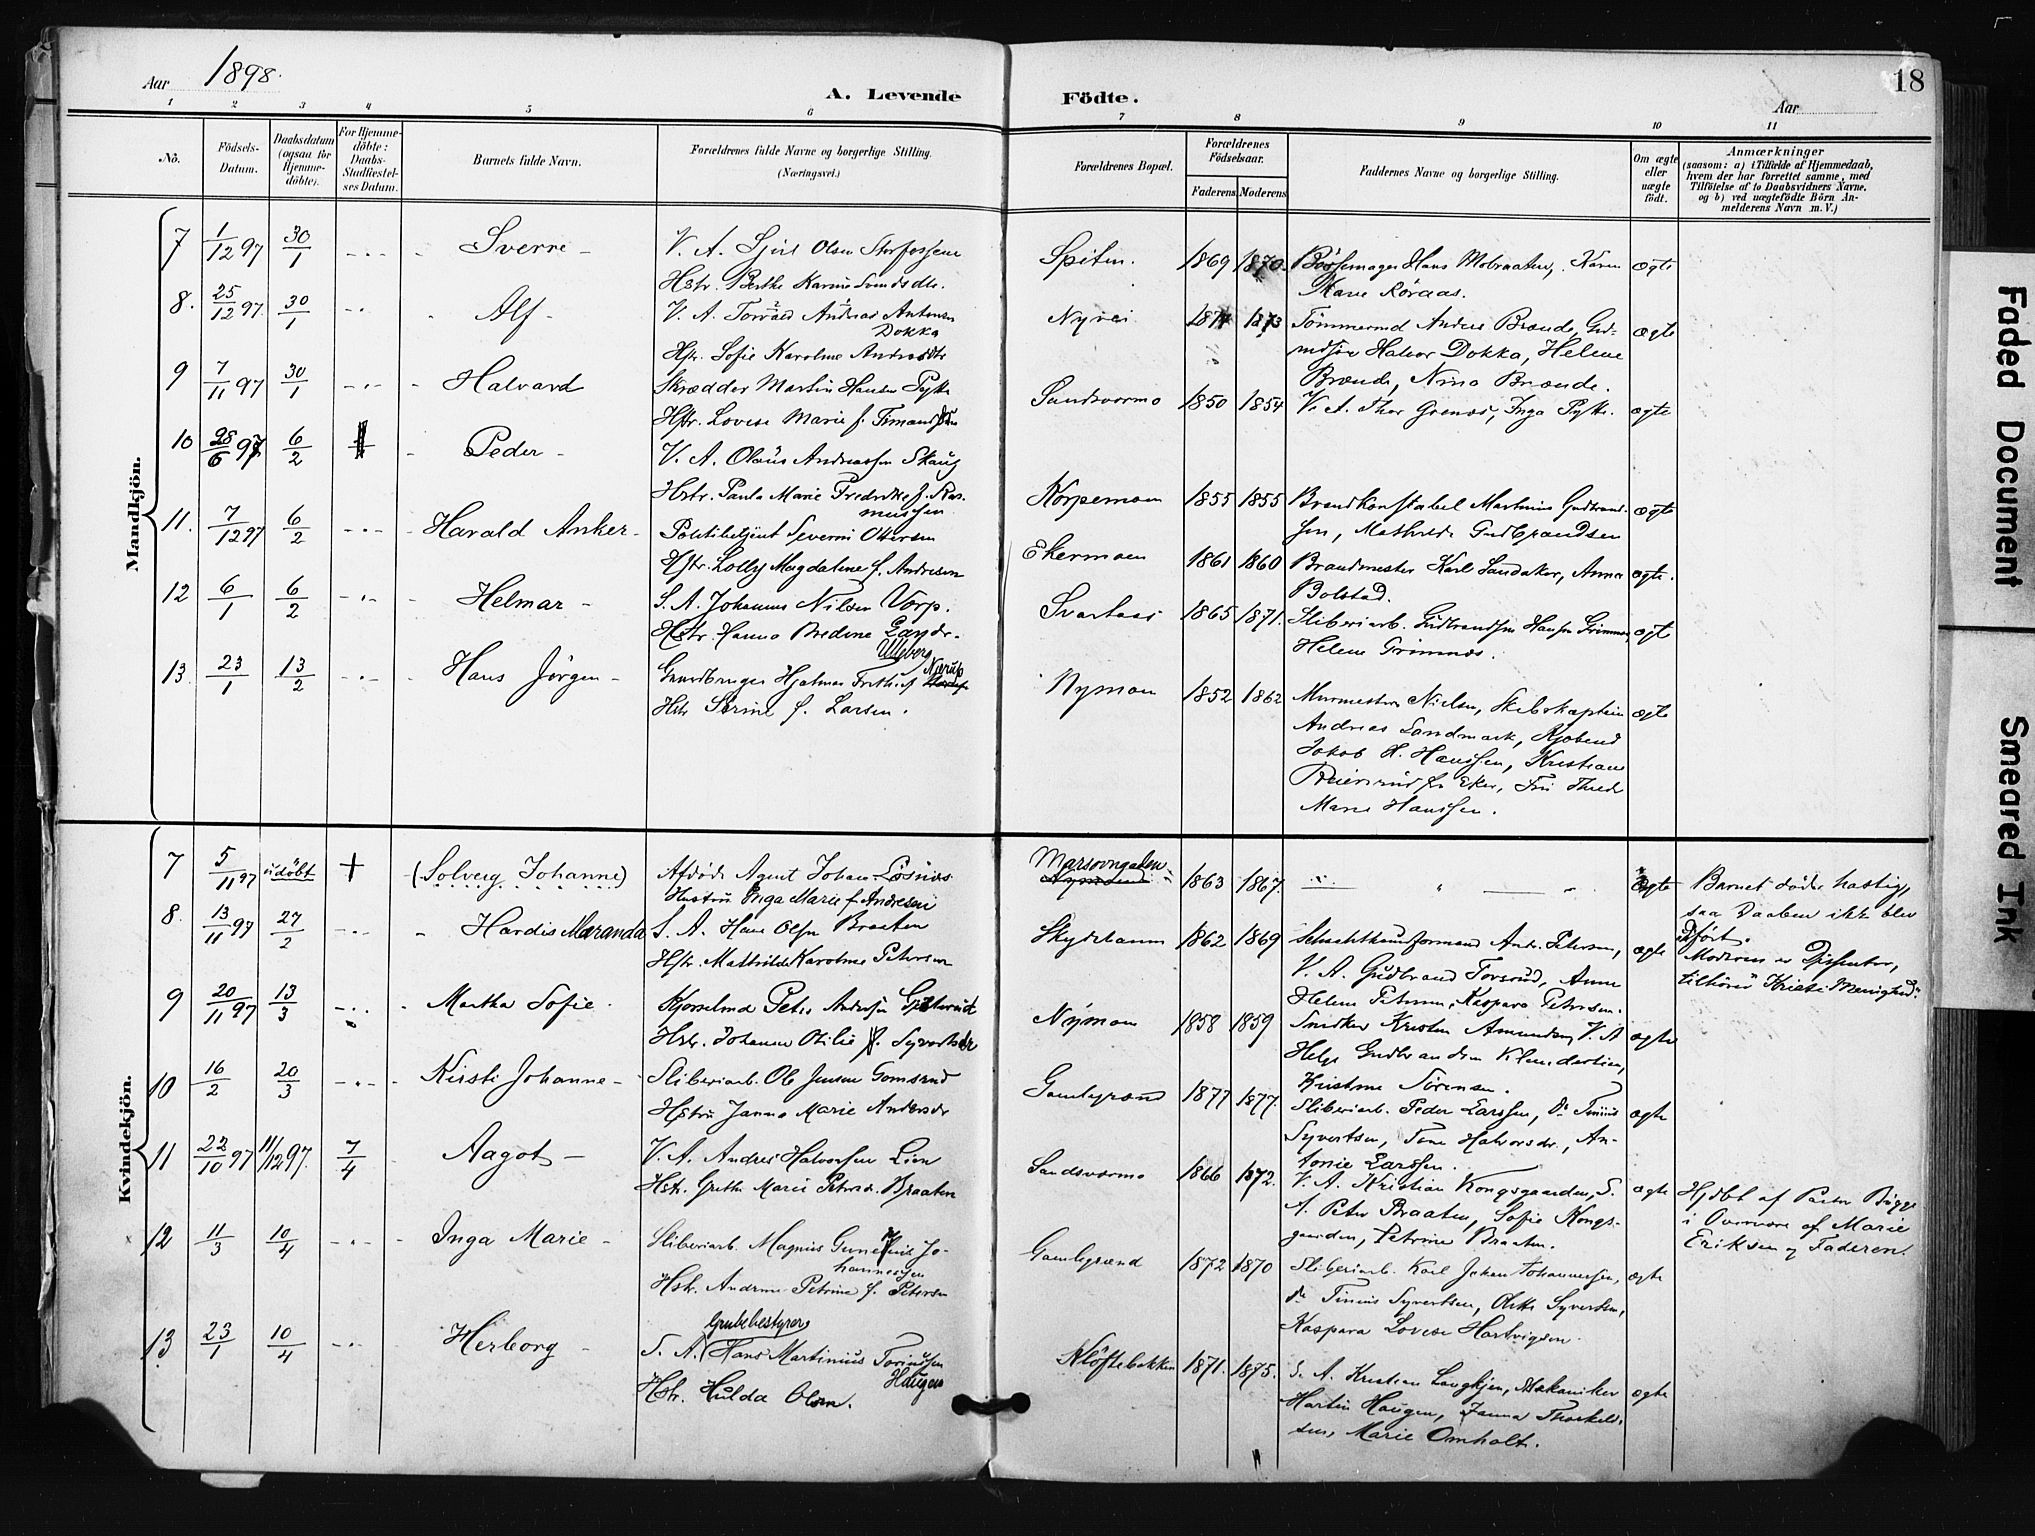 Aar 1898.
A. Levende Födte.
18
Aar
1 2 3 4 5 6 7 8 9 10 11
No.
Födsels-
Datum.
Daabsdatum
(ogsaa for
Hjemme-
döbte).
For Hjemme-
döbte:
Daabs-
Stadfæstel-
ses Datum.
Barnets fulde Navn.
Forældrenes fulde Navne og borgerlige Stilling.
(Næringsvei.)
Forældrenes Bopæl.
Forældrenes
Födselsaar.
Faderens Moderens
Faddernes Navne og borgerlige Stilling.
Om ægte
eller
uægte
født.
Anmærkninger
(saasom: a) i Tilfælde af Hjemmedaab,
hvem der har forrettet samme, med
Tilföielse af to Daabsvidners Navne,
og b) ved uægtefödte Börn An-
melderens Navn m. V.)
Mandkjön.
7 1/12 97 30/1 Sverre V. A. Olsen Storfossen
Hstr. Berthe Karine
Spiten. 1869 1870 Bössemager Hans Mobraaten, Karen ægte
Marie Röraas.
8. 25/12 97. 30/1 Alf V. A. Torvald Andreas Antonsen
Dokka
Hstr. Sofie Karoline
Nyvei 1874 1873 Tömmermd Anders Brænde, ægte
Halvor Dokka, Helene
Brænde, Nina Brænde.
9 7/11 97 30/1 Halvard Skrædder Martin Hansen
Hstr. Lovise Marie f.
Sandsværmo 1850 1854 V. A. Thor Grenæs, Inga ægte
10 28/6 97 6/2 Peder V. A. Olaus Andreassen Skaug
Hstr. Paula Marie Fredrikke f. Ras-
mussen
Korpemoen 1855 1855 Brandkonstabel Martinius Gudbrand- ægte
sen, Mathilde Gudbrandsen
11. 7/12 97 6/2 Harald Anker Politibetjent Severin Ottersen
Hstr. Lolly Magdalene f. Andresen
Ekermoen 1861 1860 Brandmester Karl Sandaker, Anna ægte.
Bolstad.
12 6/1 6/2 Helmar S. A. Johannes Nilsen Vorp.
Hstr. Hanna Bredine
Ulleberg
Svartaas 1865 1871. Sliberiarb. Gudbrandsen Hansen Grimnæs, ægt
Helene Grimnæs.
13. 23/1 13/2 Hans Jörgen Grundbruger Hjalmar Frithjof Nærup
Hstr Serine f. Larsen.
Nymoen 1852 1862 Murmester Nielsen, Skibskaptein ægte
Andreas Landmark, Kjöbmd
Jakob H. Hanssen, Kristiane
Eker, Fru
Marie Hanssen.
Kvindekjön.
7 5/11 97 udöbt + (Solveig Johanne) Afdöde Agent Johan Lösnæs
Hustru Inga Marie f. Andresen
1863 1867. ægte Barnet döde hastig,
saa Daaben ikke blev
udfört.
8. 13/11 97 27/2 Hardis Maranda S. A. Hans Olsen Braaten
Hstr. Mathilde Karoline Petersen
1862 1869 Andr. Petersen, ægte Moderen er Dissenter,
V. A. Gudbrand Torsrud, Anne tilhörer Kristi Menighed.
Helene Petersen, Kaspara Petersen.
9 20/11 97 13/3 Martha Sofie Peter Andersen
Hstr. Johanne Otilie f. Syvertsdr
Nymoen 1858 1859 Snedker Kristen Amundsen, V. A ægte
Helge Gudbrandsen
Kristine Sörensen.
10 16/2 20/3 Kirsti Johanne Sliberiarb. Ole Jensen Gomsrud
Hstru Janna Marie Andersdr
Gamlegrænd 1877 1877. Sliberiarb. Peder Larssen, do Tinius ægte
Syvertsen, Tine Halvorsdr, An-
tonie Larssen.
11 22/10 97 11/12 97. 7/4 Aagot V. A. Andres Halvorsen Lien
Hstr. Grethe Marie Petersdr. Braaten
Sandsværmo 1866 1872. V. A. Kristian Kongsgaarden, S. ægte Hjdbt af Pastor Bugge
A. Peter Braaten, Sofie Kongs- i Overvære af Marie
gaarden, Petrine Braaten. Eriksen og Faderen.
12 11/3 10/4 Inga Marie Sliberiarb. Magnus Jo-
hannessen
Hstr. Andrine Petrine f. Petersen
Gamlegrænd 1872 1870 Sliberiarb. Karl Johan Johannessen, ægte
do Tinius Syvertsen, Syvertsen,
Kaspara Lovise Hartvigsen.
13. 23/1 10/4 Herborg Grubebestyrer
S. A. Hans Martinius Torjussen
Haugen
Hstr. Hulda Olsen.
Klöftebakken 1871. 1875. S. A. Kristian Langkjen, Mekaniker ægte
Martin Haugen, Janna Thorkild-
sen, Marie Omholt.
Faded Document
Smeared Ink